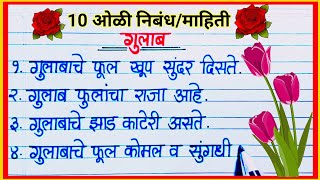 10 ओळी निबंध/माहिती
गुलाब
१. गुलाबाचे फूल खूप सुंदर दिसते.
२. गुलाब फुलांचा राजा आहे.
३. गुलाबाचे झाड काटेरी असते.
४. गुलाबाचे फूल कोमल व सुगंधी